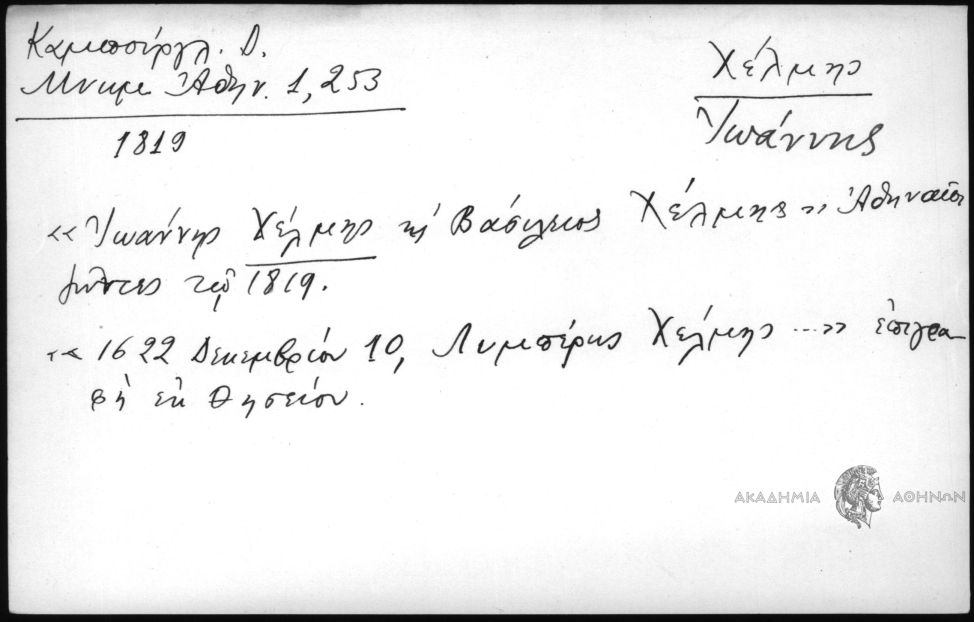 Καμπούργλ. Δ.
Μνημ. Ἀθην. 1, 253
1819
Χέλμης
Ἰωάννης
«Ἰωάννης Χέλμης καὶ Βασίλειος Χέλμης» Ἀθηναῖοι
τοῦ 1819.
«1622 Δεκεμβρίου 10, Λυμπέρης Χέλμης ...» ἐπιγρα
φὴ ἐκ Θησείου.
ΑΚΑΔΗΜΙΑ ΑΘΗΝΩΝ